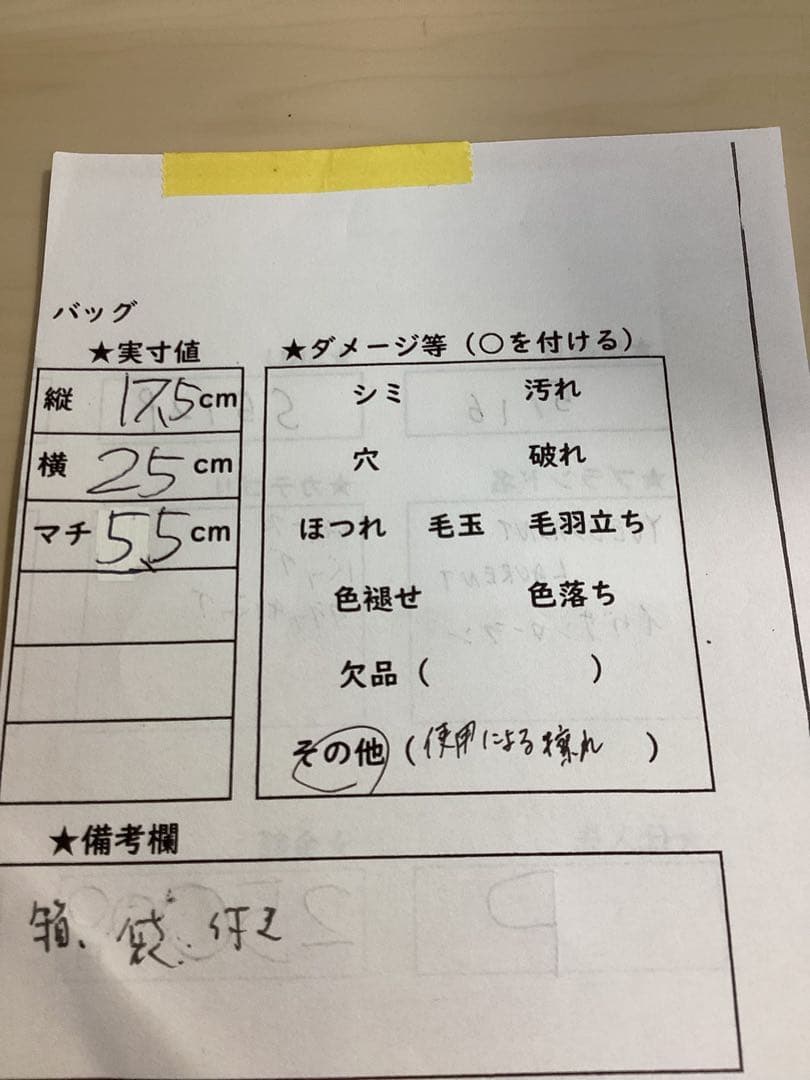 バッグ
★実寸値
縦 17.5cm
横 25cm
マチ 5.5cm
★ダメージ等（○を付ける）
シミ 汚れ
穴 破れ
ほつれ 毛玉 毛羽立ち
色褪せ 色落ち
欠品（ ）
その他（使用による擦れ）
★備考欄
箱、袋、付き